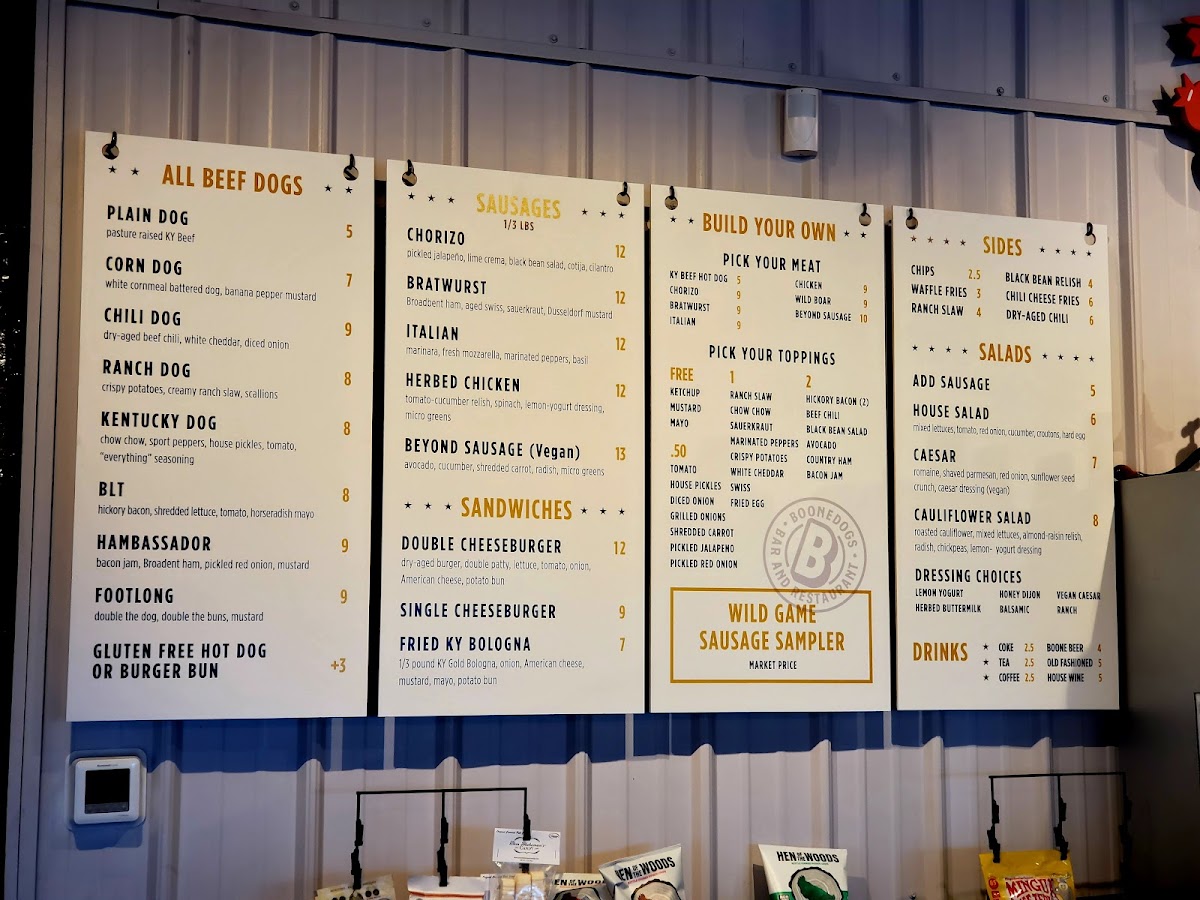 ALL BEEF DOGS
PLAIN DOG 5
pasture raised KY Beef
CORN DOG 7
white cornmeal battered dog, banana pepper mustard
CHILI DOG 9
dry-aged beef chili, white cheddar, diced onion
RANCH DOG 8
crispy potatoes, creamy ranch slaw, scallions
KENTUCKY DOG 8
chow chow, sport peppers, house pickles, tomato,
"everything" seasoning
BLT 8
hickory bacon, shredded lettuce, tomato, horseradish mayo
HAMBASSADOR 9
bacon jam, Broadent ham, pickled red onion, mustard
FOOTLONG 9
double the dog, double the buns, mustard
GLUTEN FREE HOT DOG
OR BURGER BUN +3
SAUSAGES
1/3 LBS
CHORIZO 12
pickled jalapeño, lime crema, black bean salad, cotija, cilantro
BRATWURST 12
Broadbent ham, aged swiss, sauerkraut, Dusseldorf mustard
ITALIAN 12
marinara, fresh mozzarella, marinated peppers, basil
HERBED CHICKEN 12
tomato-cucumber relish, spinach, lemon-yogurt dressing,
micro greens
BEYOND SAUSAGE (Vegan) 13
avocado, cucumber, shredded carrot, radish, micro greens
SANDWICHES
DOUBLE CHEESEBURGER 12
dry-aged burger, double patty, lettuce, tomato, onion,
American cheese, potato bun
SINGLE CHEESEBURGER 9
FRIED KY BOLOGNA 7
1/3 pound KY Gold Bologna, onion, American cheese,
mustard, mayo, potato bun
BUILD YOUR OWN
PICK YOUR MEAT
KY BEEF HOT DOG 5
CHORIZO 9
BRATWURST 9
ITALIAN 9
CHICKEN 9
WILD BOAR 9
BEYOND SAUSAGE 10
PICK YOUR TOPPINGS
FREE
KETCHUP
MUSTARD
MAYO
.50
TOMATO
HOUSE PICKLES
DICED ONION
GRILLED ONIONS
SHREDDED CARROT
PICKLED JALAPENO
PICKLED RED ONION
1
RANCH SLAW
CHOW CHOW
SAUERKRAUT
MARINATED PEPPERS
CRISPY POTATOES
WHITE CHEDDAR
SWISS
FRIED EGG
2
HICKORY BACON (2)
BEEF CHILI
BLACK BEAN SALAD
AVOCADO
COUNTRY HAM
BACON JAM
BOONEDOGS
B
BAR AND RESTAURANT
WILD GAME
SAUSAGE SAMPLER
MARKET PRICE
SIDES
CHIPS 2.5
WAFFLE FRIES 3
RANCH SLAW 4
BLACK BEAN RELISH 4
CHILI CHEESE FRIES 6
DRY-AGED CHILI 6
SALADS
ADD SAUSAGE 5
HOUSE SALAD 6
mixed lettuces, tomato, red onion, cucumber, croutons, hard egg
CAESAR 7
romaine, shaved parmesan, red onion, sunflower seed
crunch, caesar dressing (vegan)
CAULIFLOWER SALAD 8
roasted cauliflower, mixed lettuces, almond-raisin relish,
radish, chickpeas, lemon- yogurt dressing
DRESSING CHOICES
LEMON YOGURT HONEY DIJON VEGAN CAESAR
HERBED BUTTERMILK BALSAMIC RANCH
DRINKS
COKE 2.5 BOONE BEER 4
TEA 2.5 OLD FASHIONED 5
COFFEE 2.5 HOUSE WINE 5
HEN OF THE WOODS
HEN OF THE WOODS